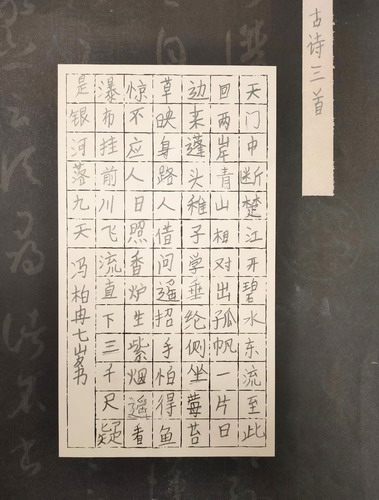 古诗三首
天门中断楚江开碧水东流至此
回两岸青山相对出孤帆一片日
边来蓬头稚子学垂纶侧坐莓苔
草映身路人借问遥招手怕得鱼
惊不应人日照香炉生紫烟遥看
瀑布挂前川飞流直下三千尺疑
是银河落九天 冯柏冉七岁书